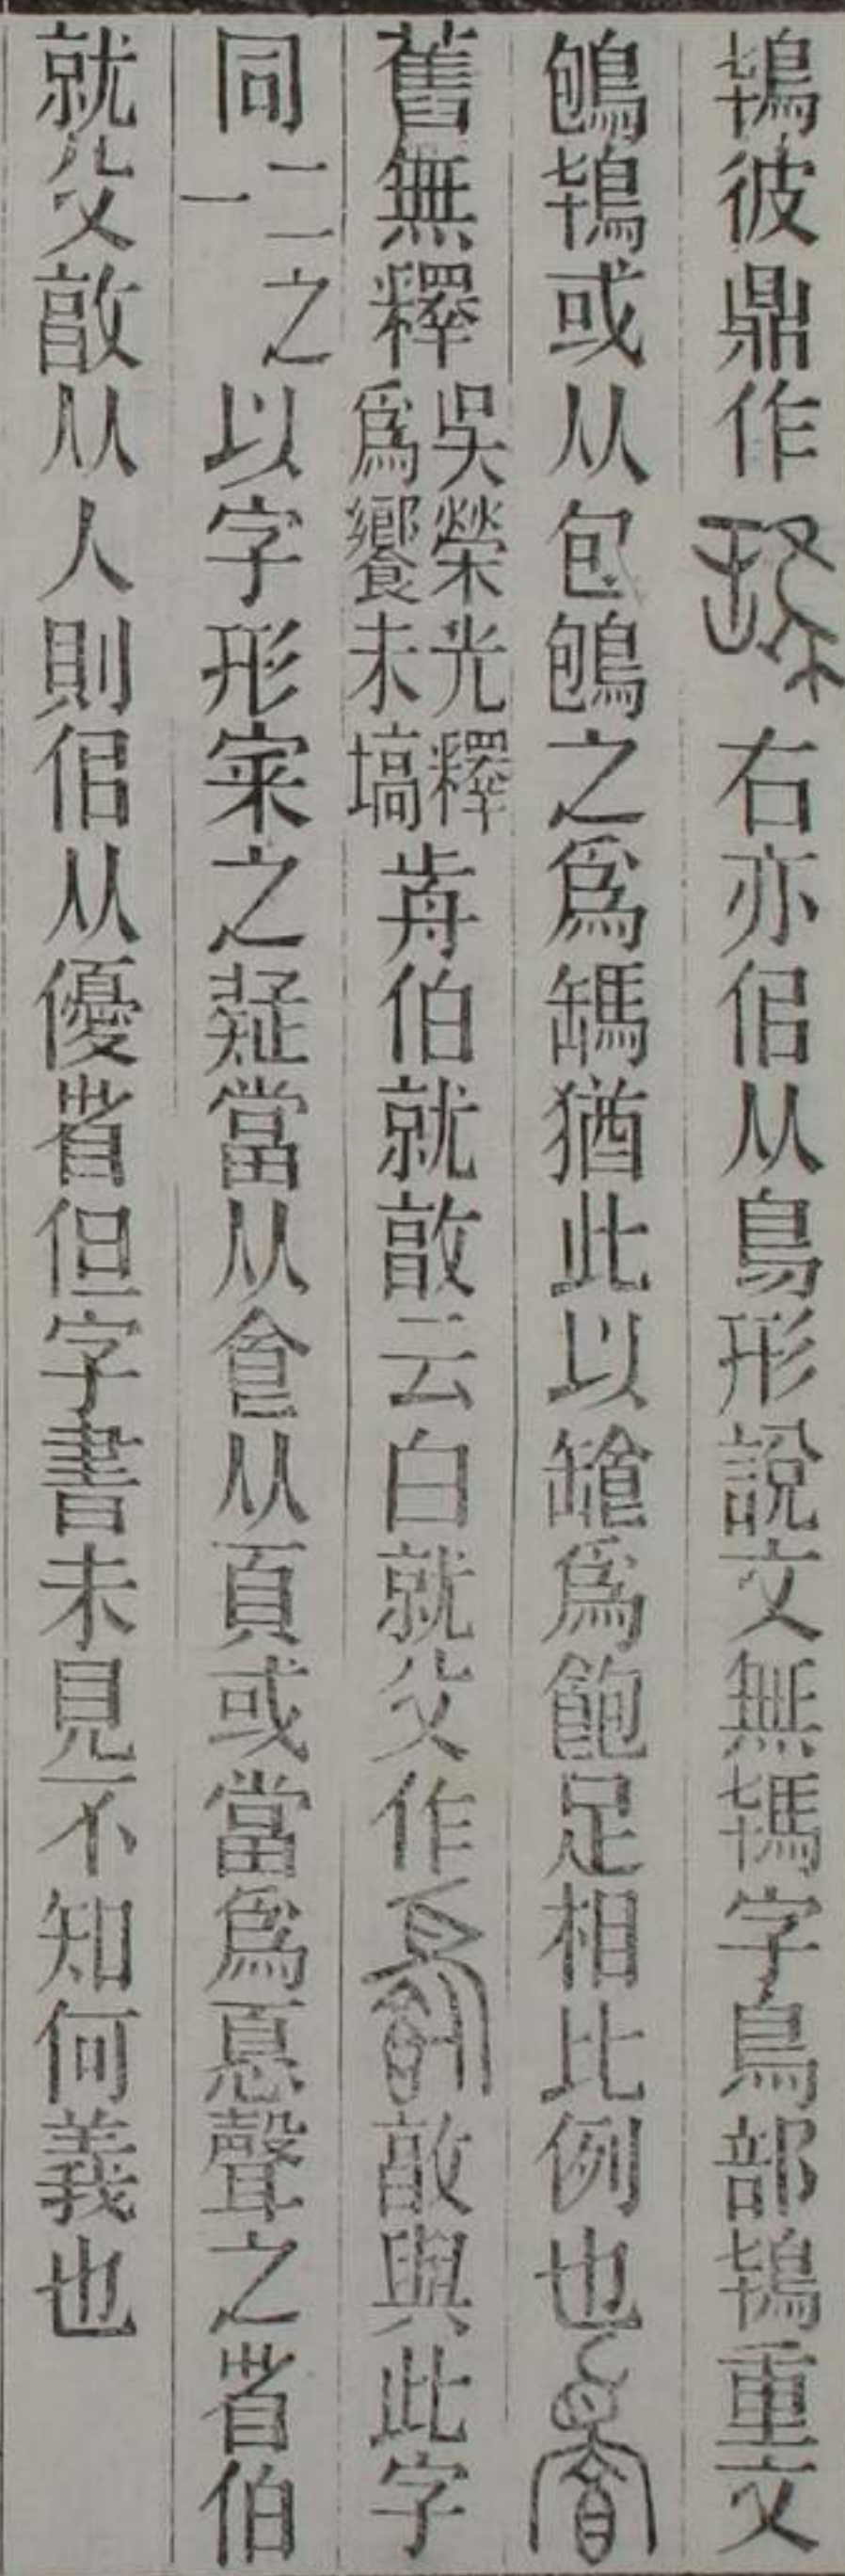 鴇彼鼎作右亦侣从鳥形說文無駂字鳥部鴇重文
䳈鴇或从包䳈之爲猶此以爲飽足相比例也
舊無釋吳榮光釋爲饗未塙歬伯就敦云白就父作敦與此字
同二之一以字形寀之疑當从食从頁或當爲㥑聲之省伯
就父敦从人則侣从優省但字書未見不知何義也